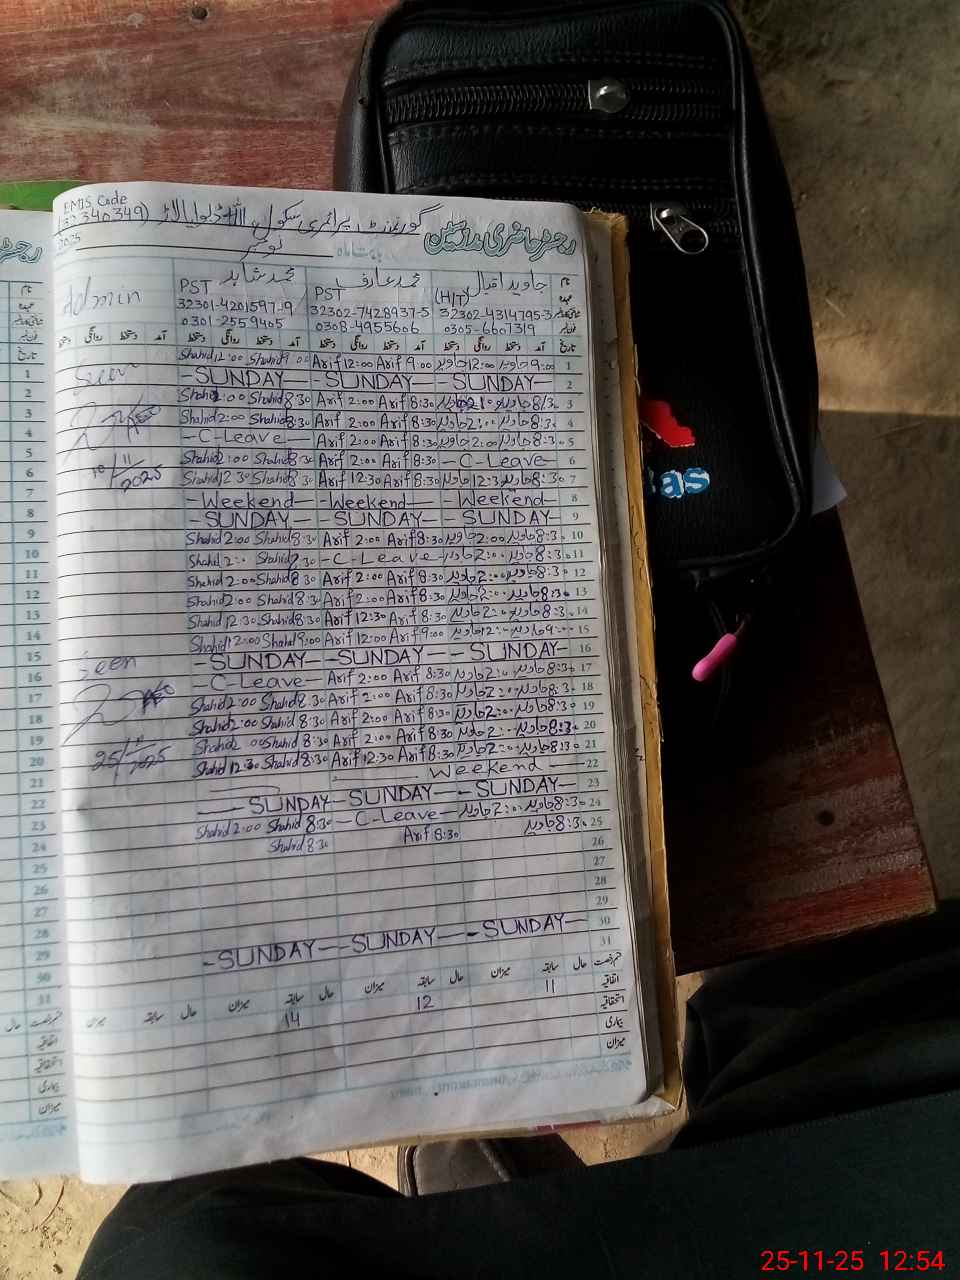 EMIS Code
(32340349) گورنمنٹ پرائمری سکول
2025 نومبر
رجسٹر حاضری مدرسین
Admin
محمد شاہد محمد عارف جاوید اقبال نام
PST PST (H/T) عہدہ
32301-4201597-9 32302-7428937-5 32302-4314795-3
0301-2559405 0308-4955606 0305-6607319
دستخط روانگی دستخط آمد دستخط روانگی دستخط آمد دستخط روانگی دستخط آمد دستخط روانگی دستخط آمد تاریخ
Shahid 12:00 Shahid 9:00 Arif 12:00 Arif 9:00 جاوید 12:00 جاوید 9:00 1
Seen
-SUNDAY- -SUNDAY- -SUNDAY- 2
Shahid 2:00 Shahid 8:30 Arif 2:00 Arif 8:30 جاوید جاوید 8:30 3
Shahid 2:00 Shahid 8:30 Arif 2:00 Arif 8:30 جاوید 2:00 جاوید 8:30 4
-C-Leave- Arif 2:00 Arif 8:30 جاوید 2:00 جاوید 8:30 5
Shahid 2:00 Shahid 8:30 Arif 2:00 Arif 8:30 -C-Leave- 6
10/11/2025
Shahid 12:30 Shahid 8:30 Arif 12:30 Arif 8:30 جاوید 12:30 جاوید 8:30 7
-Weekend- -Weekend- -Weekend- 8
-SUNDAY- -SUNDAY- -SUNDAY- 9
Shahid 2:00 Shahid 8:30 Arif 2:00 Arif 8:30 جاوید 2:00 جاوید 8:30 10
Shahid 2:00 Shahid 8:30 -C-Leave- جاوید 2:00 جاوید 8:30 11
Shahid 2:00 Shahid 8:30 Arif 2:00 Arif 8:30 جاوید 2:00 جاوید 8:30 12
Shahid 2:00 Shahid 8:30 Arif 2:00 Arif 8:30 جاوید 2:00 جاوید 8:30 13
Shahid 12:30 Shahid 8:30 Arif 12:30 Arif 8:30 جاوید جاوید 8:30 14
Shahid 12:00 Shahid 9:00 Arif 12:00 Arif 9:00 جاوید 12:00 جاوید 9:00 15
Seen
-SUNDAY- -SUNDAY- -SUNDAY- 16
-C-Leave- Arif 2:00 Arif 8:30 جاوید 2:00 جاوید 8:30 17
Shahid 2:00 Shahid 8:30 Arif 2:00 Arif 8:30 جاوید 2:00 جاوید 8:30 18
Shahid 2:00 Shahid 8:30 Arif 2:00 Arif 8:30 جاوید 2:00 جاوید 8:30 19
Shahid 2:00 Shahid 8:30 Arif 2:00 Arif 8:30 جاوید 2:00 جاوید 8:30 20
25/11/2025
Shahid 12:30 Shahid 8:30 Arif 12:30 Arif 8:30 جاوید 2:00 جاوید 8:30 21
Weekend 22
-SUNDAY-SUNDAY- -SUNDAY- 23
Shahid 2:00 Shahid 8:30 -C-Leave- جاوید 2:00 جاوید 8:30 24
Shahid 8:30 Arif 8:30 جاوید 8:30 25
26
27
28
29
-SUNDAY-SUNDAY- -SUNDAY- 30
31
میزان سابقہ حال میزان سابقہ حال میزان سابقہ حال میزان سابقہ حال قسم رخصت
14 12 11 اتفاقیہ
استحقاقیہ
بیماری
میزان
das
25-11-25 12:54